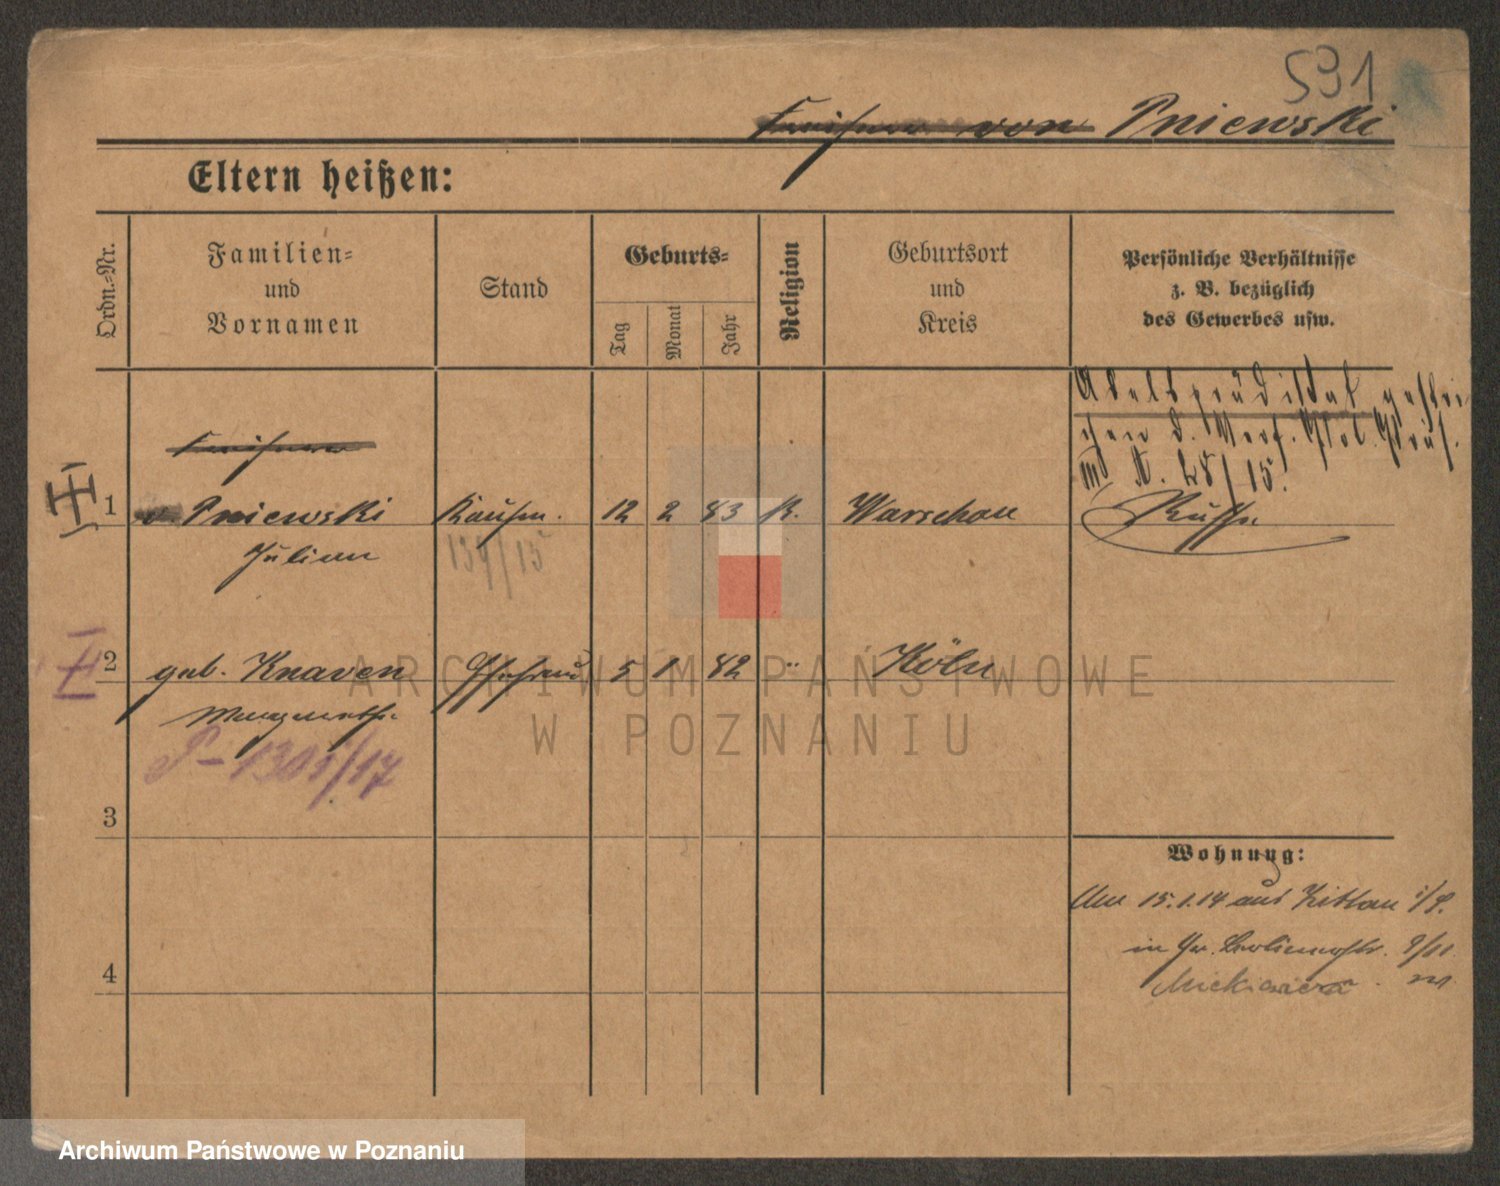 591
von Pniewski
Eltern heißen:
Ordn.-Nr.
Familien-
und
Vornamen
Stand
Geburts-
Tag
Monat
Jahr
Religion
Geburtsort
und
Kreis
Persönliche Verhältnisse
z. B. bezüglich
des Gewerbes usw.
Adelsprädikat gestri
chen d. Verf. Pol. Präs.
28/15.
Russe
1
v. Pniewski
Kaufm.
12 2 83 K.
Warschau
Julian
139/15
2
geb. Knaven
Ehefrau
5 1 82 "
Köln
P-1301/17
3
Wohnung:
Am 15.1.14 aus Zittau i/S.
in Gr. Berlinerstr.
Mickiewicza
4
ARCHIWUM PAŃSTWOWE
W POZNANIU
Archiwum Państwowe w Poznaniu